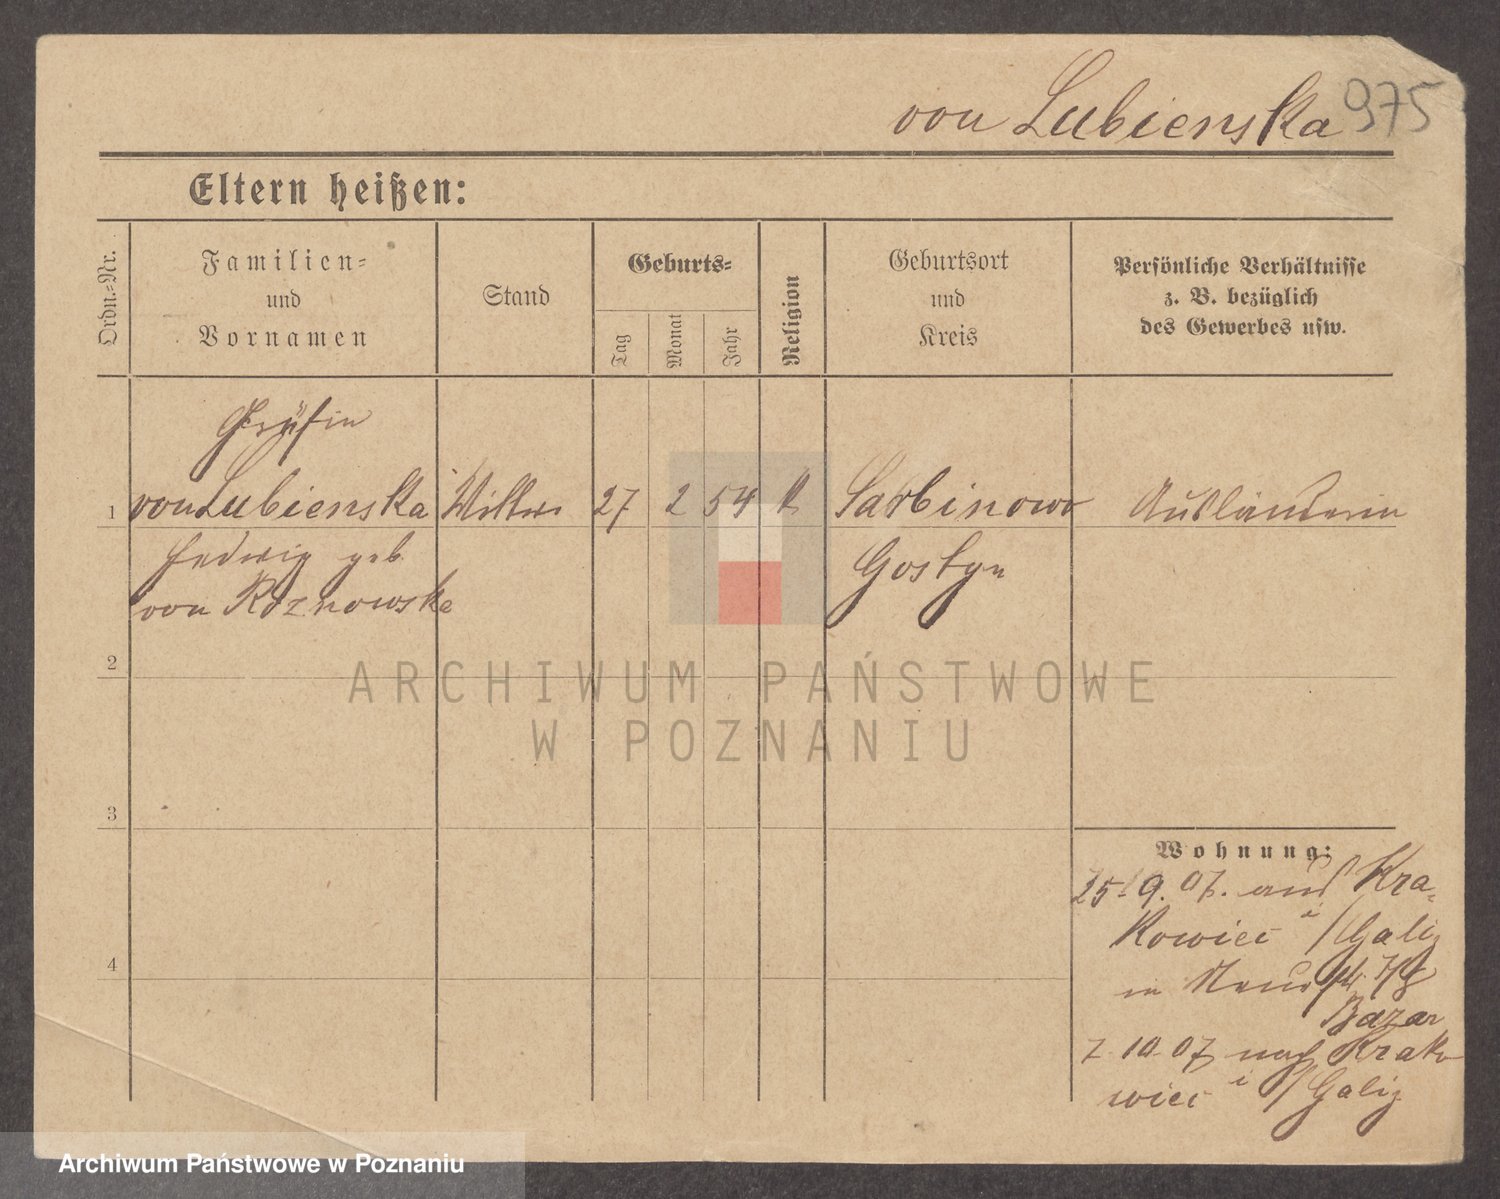 von Lubienska 975
Eltern heißen:
Ordn.-Nr.
Familien-
und
Vornamen
Stand
Geburts-
Tag
Monat
Jahr
Religion
Geburtsort
und
Kreis
Persönliche Verhältnisse
z. B. bezüglich
des Gewerbes usw.
Gräfin
1 von Lubienska Wittwe 27 2 54 k Sarbinowo Ausländerin
Hedwig geb. Gostyn
von Roznowska
2
3
4
Wohnung:
25.9.07. aus Kra-
kowiec i/Galiz
in
Bazar
7.10.07 nach Krako
wiec i/Galiz
ARCHIWUM PAŃSTWOWE
W POZNANIU
Archiwum Państwowe w Poznaniu